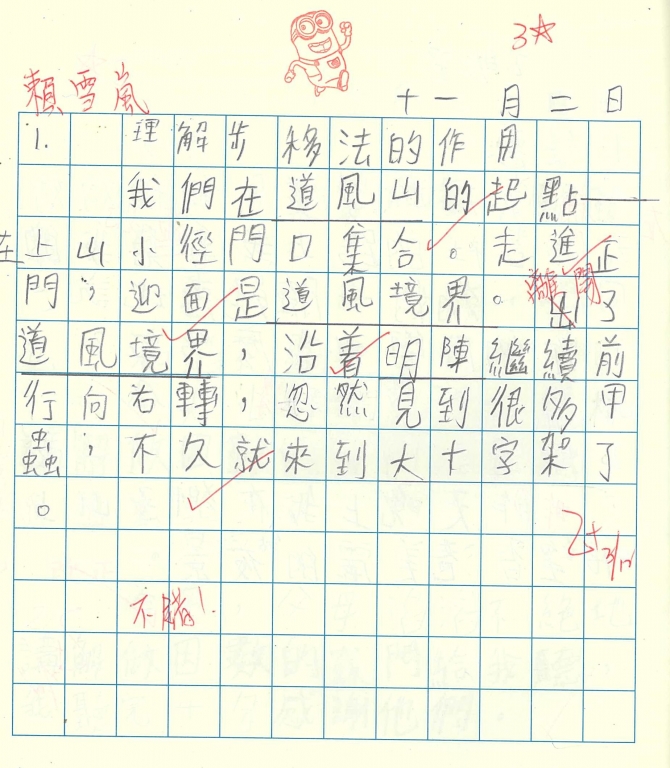 3☆
賴雪嵐
十一月二日
1. 理解步移法的作用
我們在道風山的起點——
在上山小徑門口集合。走進正
門，迎面是道風境界。離開出了
道風境界，沿着明陣繼續前
行向右轉，忽然見到很多甲
蟲，不久就來到大十字架了
。
不錯！